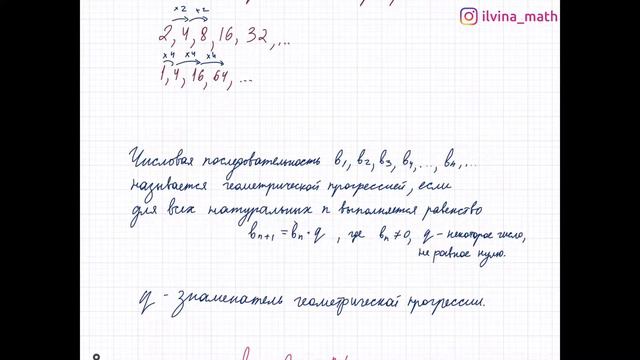 ilvina_math
×2 ×2
2, 4, 8, 16, 32, ...
×4 ×4 ×4
1, 4, 16, 64, ...
Числовая последовательность b₁, b₂, b₃, b₄, ..., bₙ, ...
называется геометрической прогрессией, если
для всех натуральных n выполняется равенство
bₙ₊₁ = bₙ · q, где bₙ ≠ 0, q - некоторое число,
не равное нулю.
q - знаменатель геометрической прогрессии.